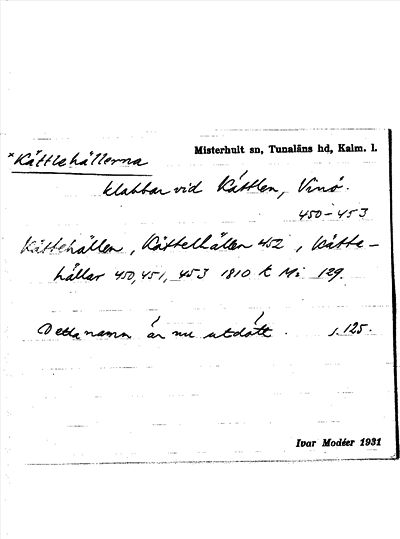 Misterhult sn, Tunaläns hd, Kalm. l.
*Kättlehällerna
klabbar vid Kättlen, Vinö.
450-453
Kättehällen, Kättelhälen 452, Kätte-
hällar 450, 451, 453 1810 t Mi 129.
Detta namn är nu utdött. s. 125.
Ivar Modéer 1931